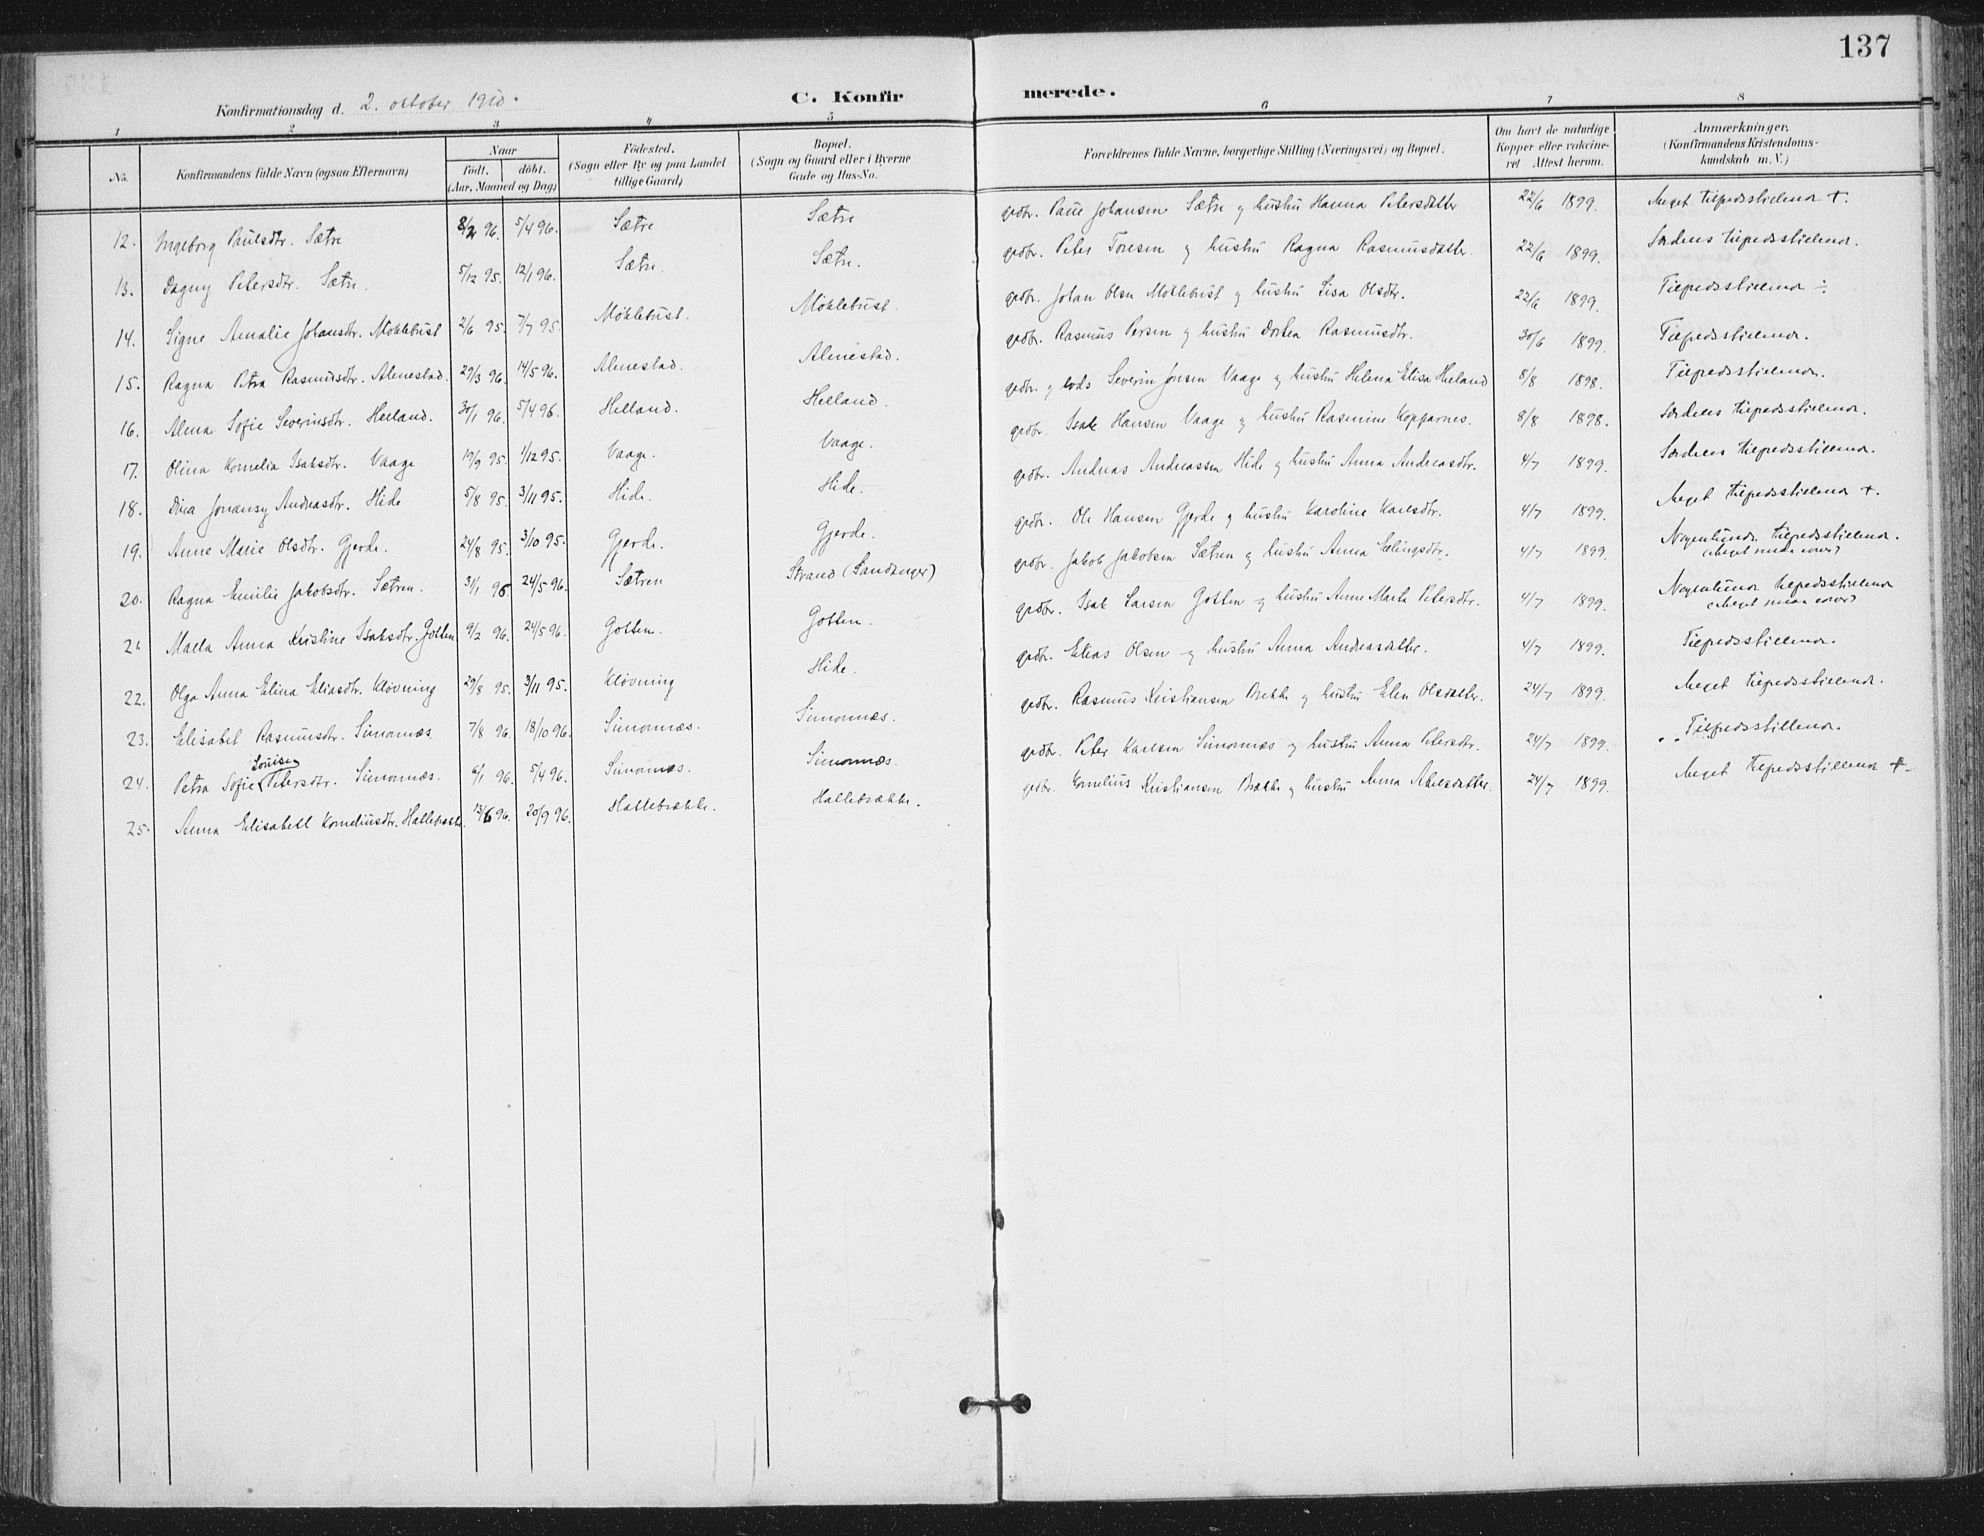 137
Konfirmationsdag d. 2. october 1910. C. Konfirmerede.
1 2 3 4 5 6 7 8
No. Konfirmandens fulde Navn (ogsaa Efternavn) Naar født. døbt. (Aar, Maaned og Dag) Födested. (Sogn eller By og paa Landet tillige Gaard) Bopæl. (Sogn og Gaard eller i Byerne Gade og Hus-No. Forældrenes fulde Navne, borgerlige Stilling (Næringsvei) og Bopæl. Om havt de naturlige Kopper eller vakcineret. Attest herom. Anmærkninger. (Konfirmandens Kristendomskundskab m. V.)
12. Ingeborg Paulsdtr. Sætre 8/2 96. 5/4 96. Sætre Sætre grdbr. Paul Johansen Sætre og hustru Hanna Petersdatter 22/6 1899. Meget tilfredsstillende +.
13. Dagny Petersdtr. Sætre. 5/12 95. 12/1 96. Sætre. Sætre. grdbr. Peter Toresen og hustru Ragna Rasmusdatter. 22/6 1899. Særdeles tilfredsstillende.
14. Signe Amalie Johansdtr. Møklebust 2/6 95. 7/7 95. Møklebust. Møklebust. grdbr. Johan Olsen Møklebust og hustru Lisa Olsdtr. 22/6 1899. Tilfredsstillende ÷
15. Ragna Petra Rasmusdtr. Alnestad. 29/3 96. 14/5 96. Alnestad. Alnestad. grdbr. Rasmus Persen og hustru Dortea Rasmusdtr. 30/6 1899. Tilfredsstillende.
16. Alma Sofie Severinsdtr. Helland. 30/1 96. 5/4 96. Helland. Helland. grdbr. og lods Severin Jonsen Vaage og hustru Helena Elisa Helland 8/8 1898. Tilfredsstillende.
17. Olina Kornelia Isaksdtr. Vaage 19/9 95. 1/12 95. Vaage. Vaage. grdbr. Isak Hansen Vaage og hustru Rasmine Kopparnes. 8/8 1898. Særdeles tilfredsstillende.
18. Dina Jonansy Andreasdtr. Hide 5/8 95. 3/11 95. Hide. Hide. grdbr. Andreas Andreassen Hide og hustru Anna Andreasdtr. 4/7 1899. Særdeles tilfredsstillende.
19. Anne Marie Olsdtr. Gjerde. 24/8 95. 3/10 95. Gjerde. Gjerde. grdbr. Ole Hansen Gjerde og hustru Karoline Karlsdtr. 4/7 1899. Meget tilfredsstillende +.
20. Ragna Emilie Jakobsdtr. Sætren. 31/1 96. 24/5 96. Sætren Strand (Sandanger) grdbr. Jakob Jakobsen Sætren og hustru Anna Elingsdtr. 4/7 1899. Nogenlunde tilfredsstillende.
21 Marta Anna Kristine Isaksdtr. Gotten 9/2 96. 24/5 96. Gotten. Gotten. grdbr. Isak Larsen Gotten og hustru Anne Marta Petersdtr. 4/7 1899. Nogenlunde tilfredsstillende
22. Olga Anna Elina Eliasdtr. Kløvning 29/8 95. 3/11 95. Kløvning Hide. grdbr. Elias Olsen og hustru Anna Andreasdatter. 4/7 1899. Tilfredsstillende.
23. Elisabet Rasmusdtr. Simonnæs. 7/8 96. 18/10 96. Simonnæs. Simonnæs. grdbr. Rasmus Kristiansen Brekke og hustru Elen Olsdatter. 24/7 1899. Meget tilfredsstillende.
24. Petra Sofie Louise Petersdtr. Simonnæs. 6/1 96. 5/4 96. Simonnæs. Simonnæs. grdbr. Peter Karlsen Simonnæs og hustru Anna Petersdtr. 24/7 1899. Tilfredsstillende.
25. Anna Elisabeth Korneliusdtr. Hallebrække. 13/6 96. 20/9 96. Hallebrække. Hallebrække. grdbr. Kornelius Kristiansen Brække og hustru Anna Akselsdatter. 24/7 1899. Meget tilfredsstillende +